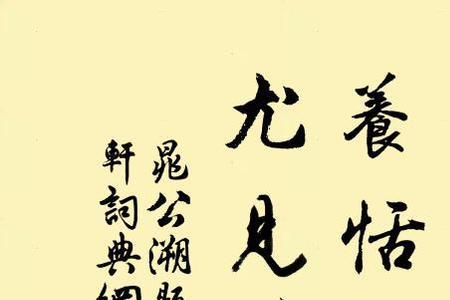 養恬
尤見
晁公溯
軒詞典